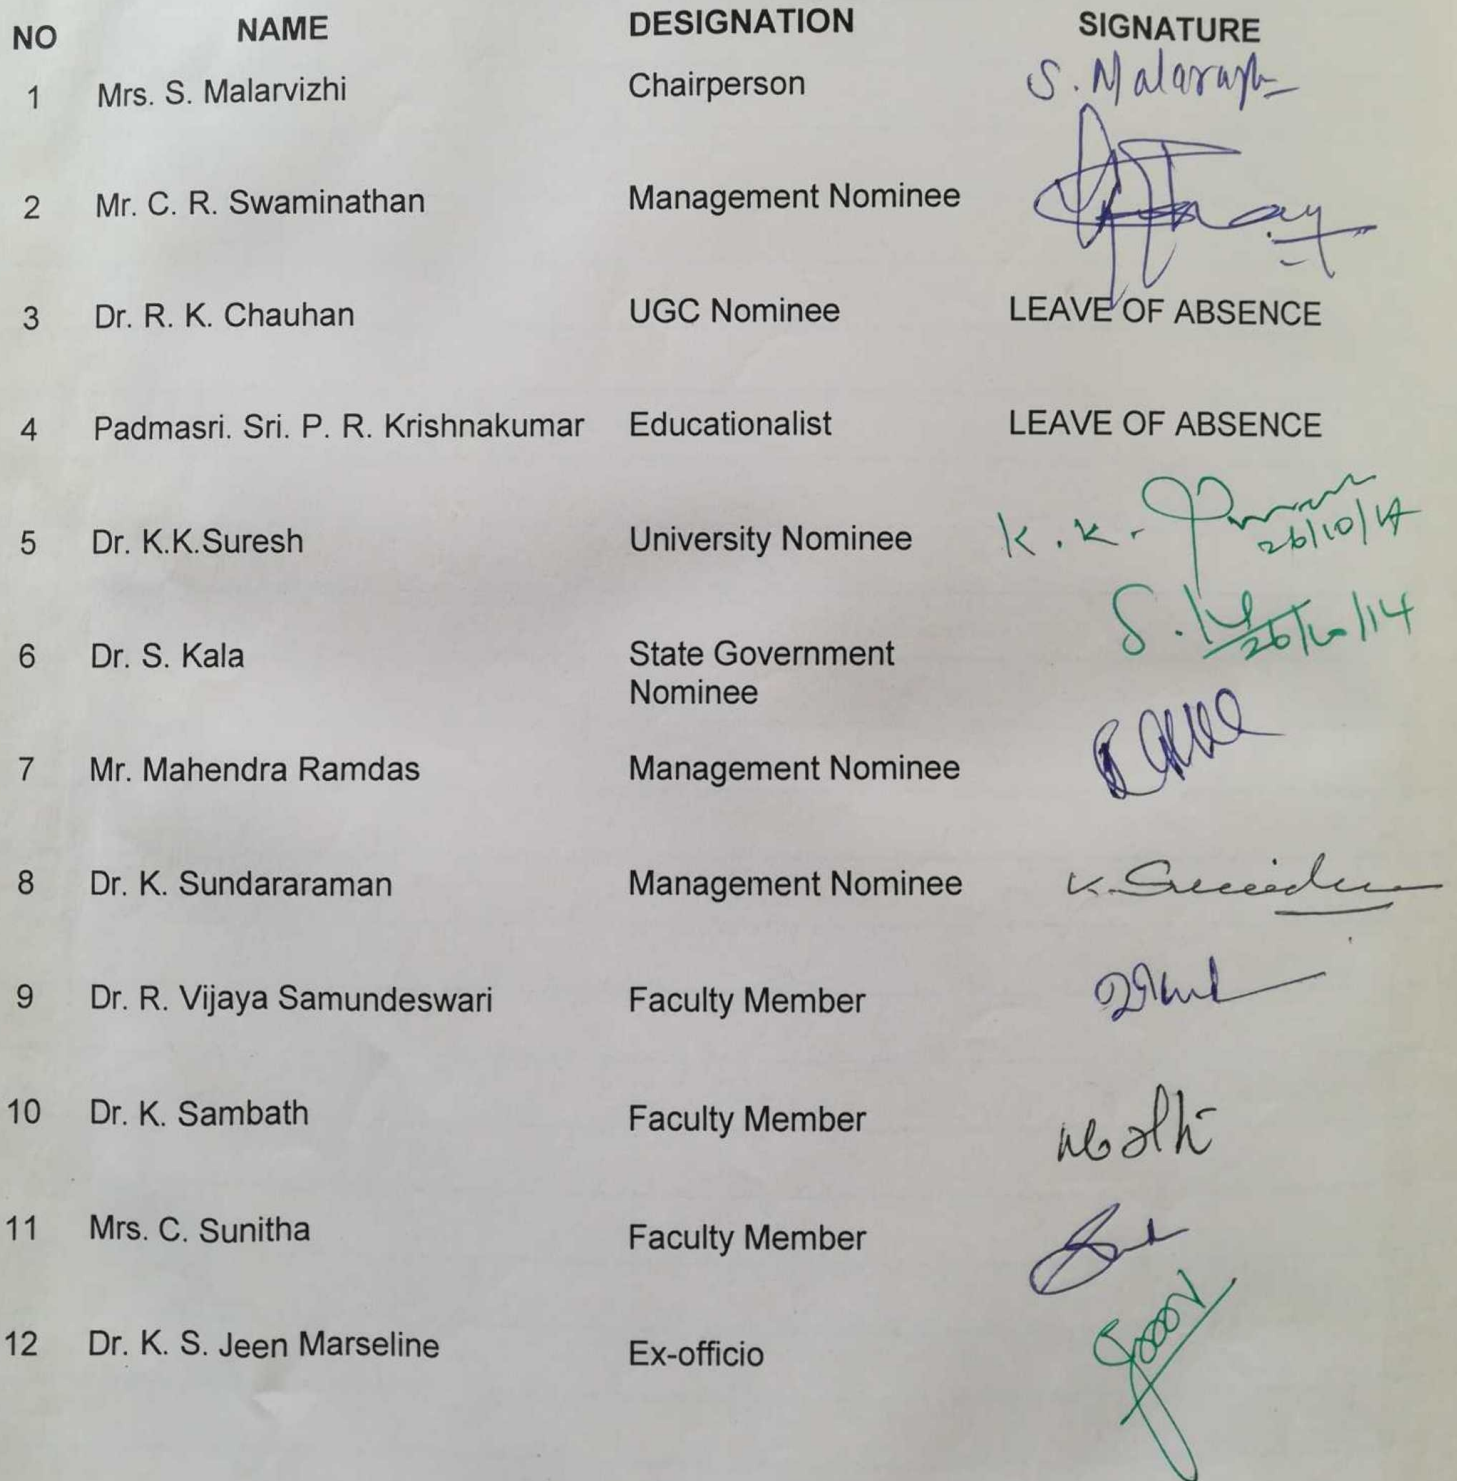 NO NAME DESIGNATION SIGNATURE
1 Mrs. S. Malarvizhi Chairperson S. Malarvizhi
2 Mr. C. R. Swaminathan Management Nominee
3 Dr. R. K. Chauhan UGC Nominee LEAVE OF ABSENCE
4 Padmasri. Sri. P. R. Krishnakumar Educationalist LEAVE OF ABSENCE
5 Dr. K.K.Suresh University Nominee K. K.
26/10/17
6 Dr. S. Kala State Government S.
Nominee
7 Mr. Mahendra Ramdas Management Nominee
8 Dr. K. Sundararaman Management Nominee K.
9 Dr. R. Vijaya Samundeswari Faculty Member
10 Dr. K. Sambath Faculty Member
11 Mrs. C. Sunitha Faculty Member
12 Dr. K. S. Jeen Marseline Ex-officio